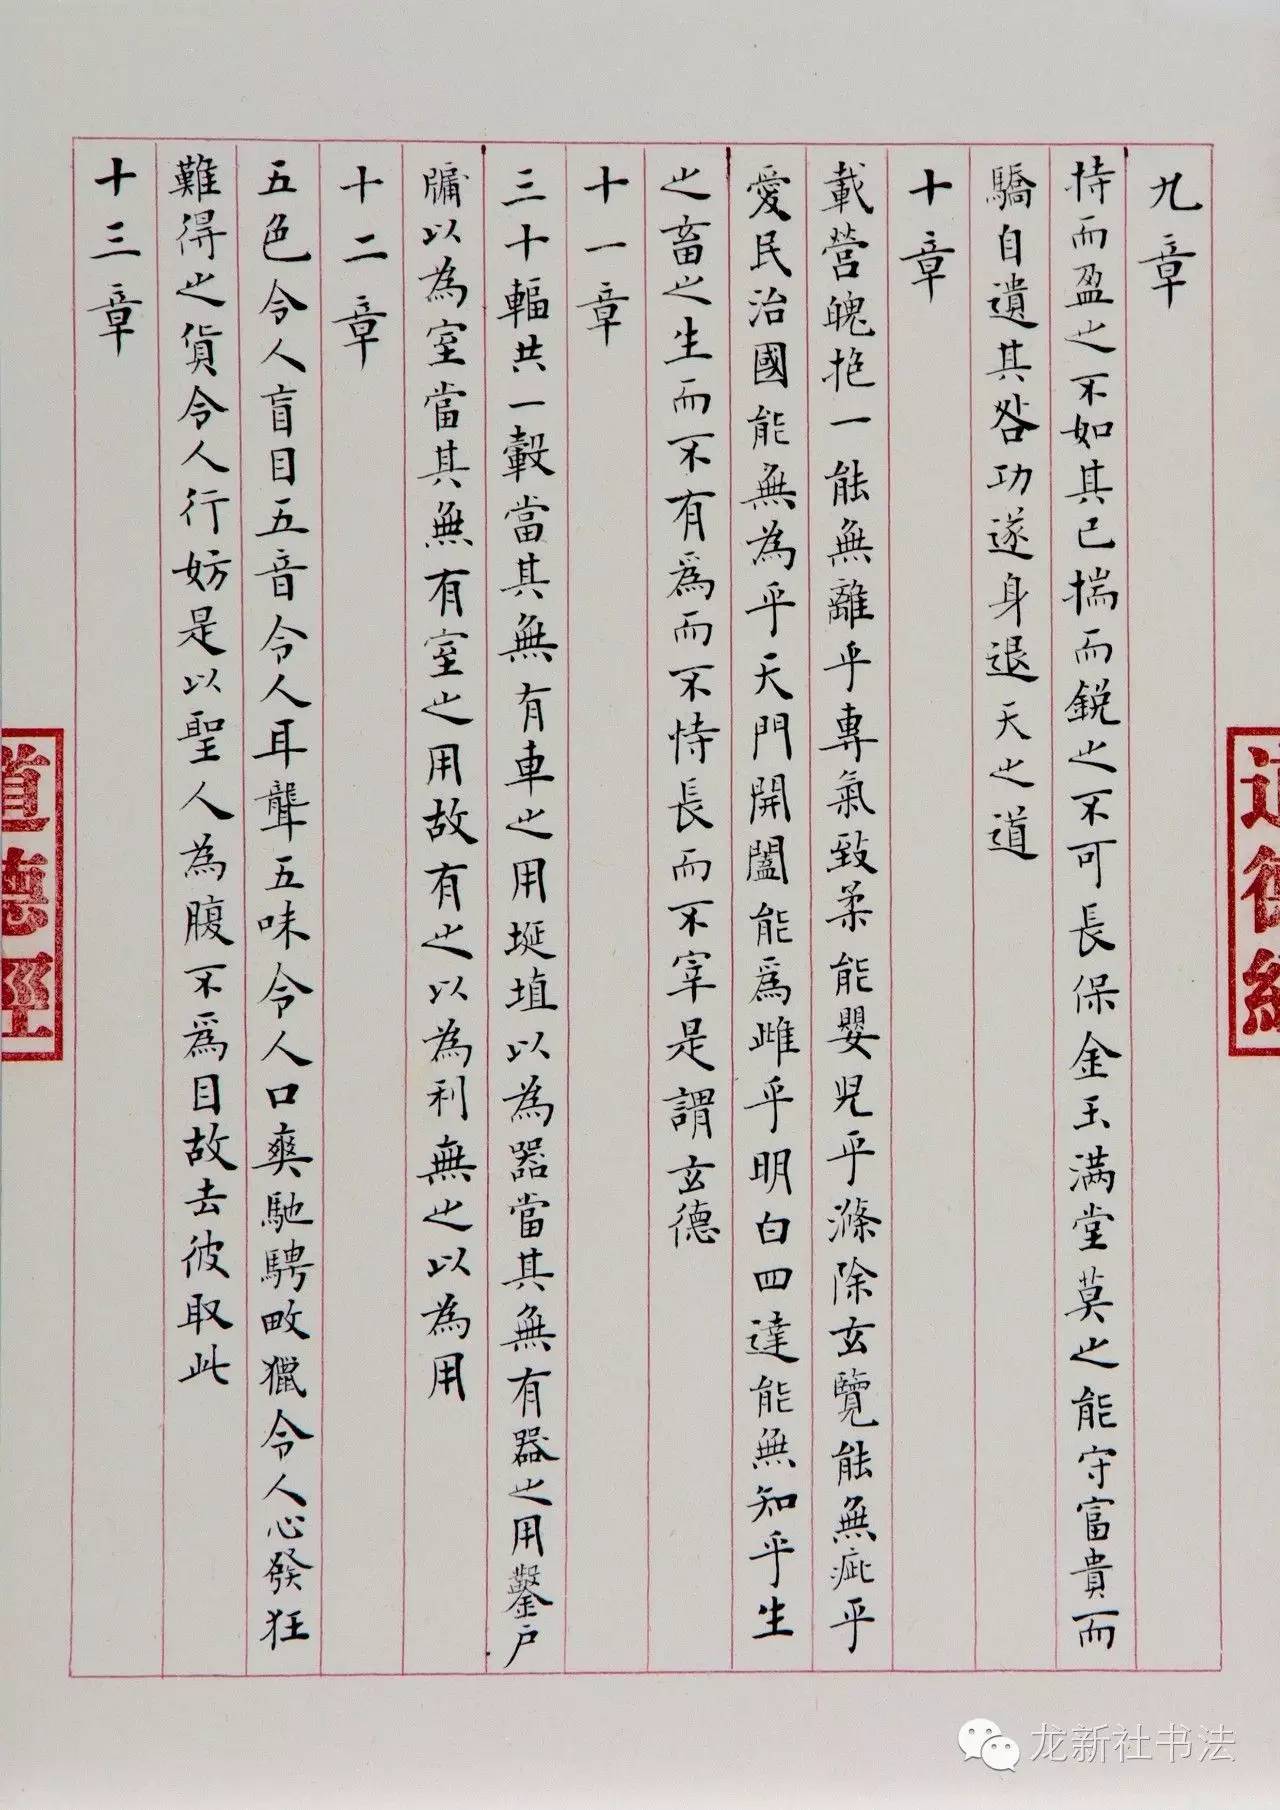 九章
持而盈之不如其已揣而銳之不可長保金玉满堂莫之能守富貴而
驕自遺其咎功遂身退天之道
十章
載營魄抱一能無離乎專氣致柔能嬰兒乎滌除玄覽能無疵乎
愛民治國能無為乎天門開闔能為雌乎明白四達能無知乎生
之畜之生而不有為而不恃長而不宰是謂玄德
十一章
三十輻共一轂當其無有車之用埏埴以為器當其無有器之用鑿戶
牖以為室當其無有室之用故有之以為利無之以為用
十二章
五色令人盲目五音令人耳聾五味令人口爽馳騁畋獵令人心發狂
難得之貨令人行妨是以聖人為腹不為目故去彼取此
十三章
道德經
道德經
龙新社书法